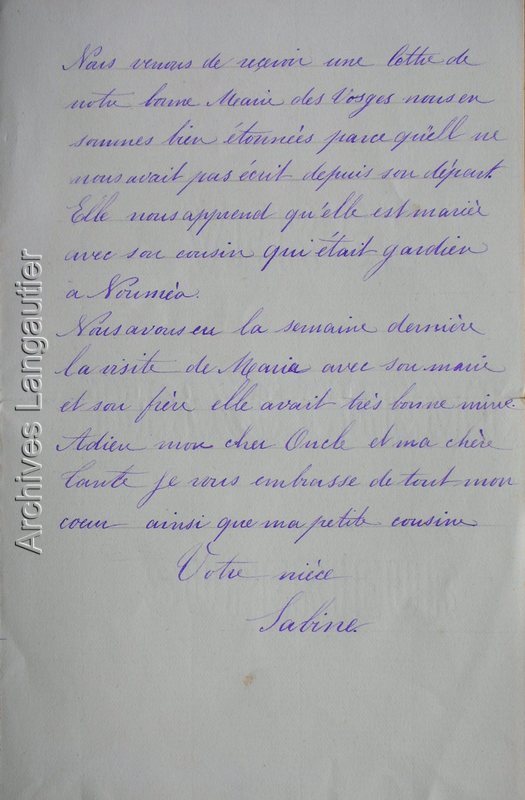 Nous venons de reçevoir une lettre de
notre bonne Marie des Vosges nous en
sommes bien étonnées parce qu'ell ne
nous avait pas écrit depuis son départ.
Elle nous apprend qu'elle est mariée
avec son cousin qui était gardien
a Nouméa.
Nous avons eu la semaine dernière
la visite de Maria avec son marie
et son frère elle avait très bonne mine.
Adieu mon cher Oncle et ma chère
Tante je vous embrasse de tout mon
coeur ainsi que ma petite cousine
Votre nièce
Sabine.
Archives Langautier